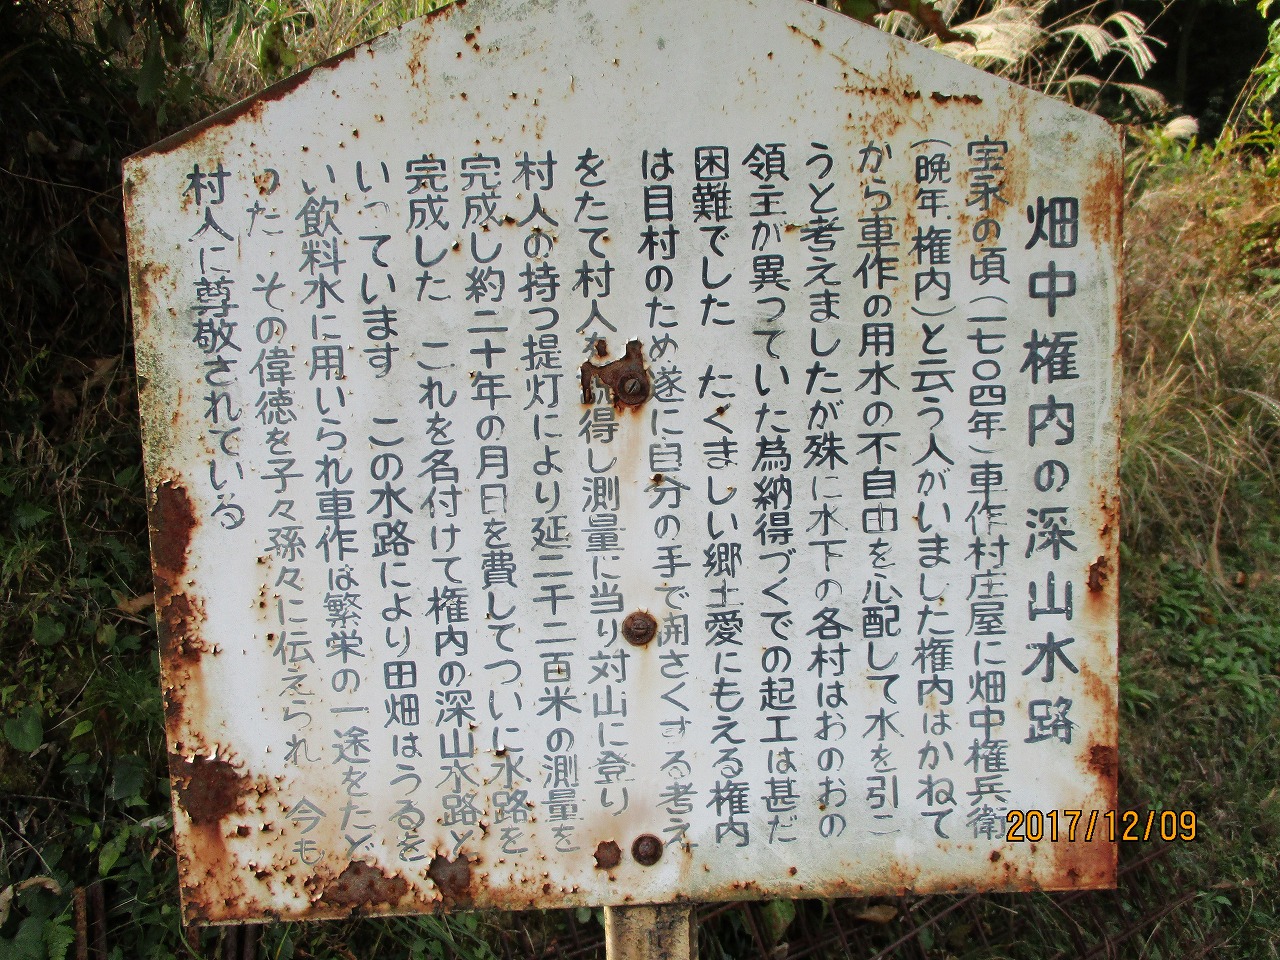 畑中権内の深山水路
宝永の頃(一七〇四年)車作村庄屋に畑中権兵衛
(晩年権内)と云う人がいました権内はかねて
から車作の用水の不自由を心配して水を引こ
うと考えましたが殊に水下の各村はおのおの
領主が異っていた為納得づくでの起工は甚だ
困難でした たくましい郷土愛にもえる権内
は目村のため遂に自分の手で開さくする考え
をたて村人を説得し測量に当り対山に登り
村人の持つ提灯により延二千二百米の測量を
完成し約二十年の月日を費してついに水路を
完成した これを名付けて権内の深山水路と
いっています この水路により田畑はうるを
い飲料水に用いられ車作は繁栄の一途をたど
った その偉徳を子々孫々に伝えられ 今も
村人に尊敬されている
2017/12/09